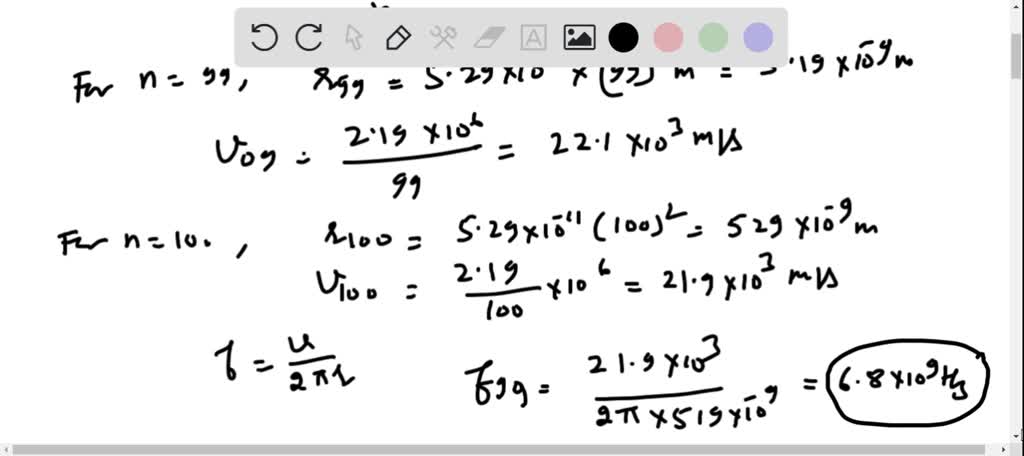 For n = 99, r99 = 5.29 × 10 × (99) m = 5.19 × 10⁻⁹ m
V09 = 2.19 × 10⁶ / 99 = 22.1 × 10³ m/s
For n = 100, r100 = 5.29 × 10⁻¹¹ (100)² = 529 × 10⁻⁹ m
V100 = 2.19 / 100 × 10⁶ = 21.9 × 10³ m/s
f = u / 2πr f99 = 21.9 × 10³ / 2π × 519 × 10⁻⁹ = 6.8 × 10⁹ Hz